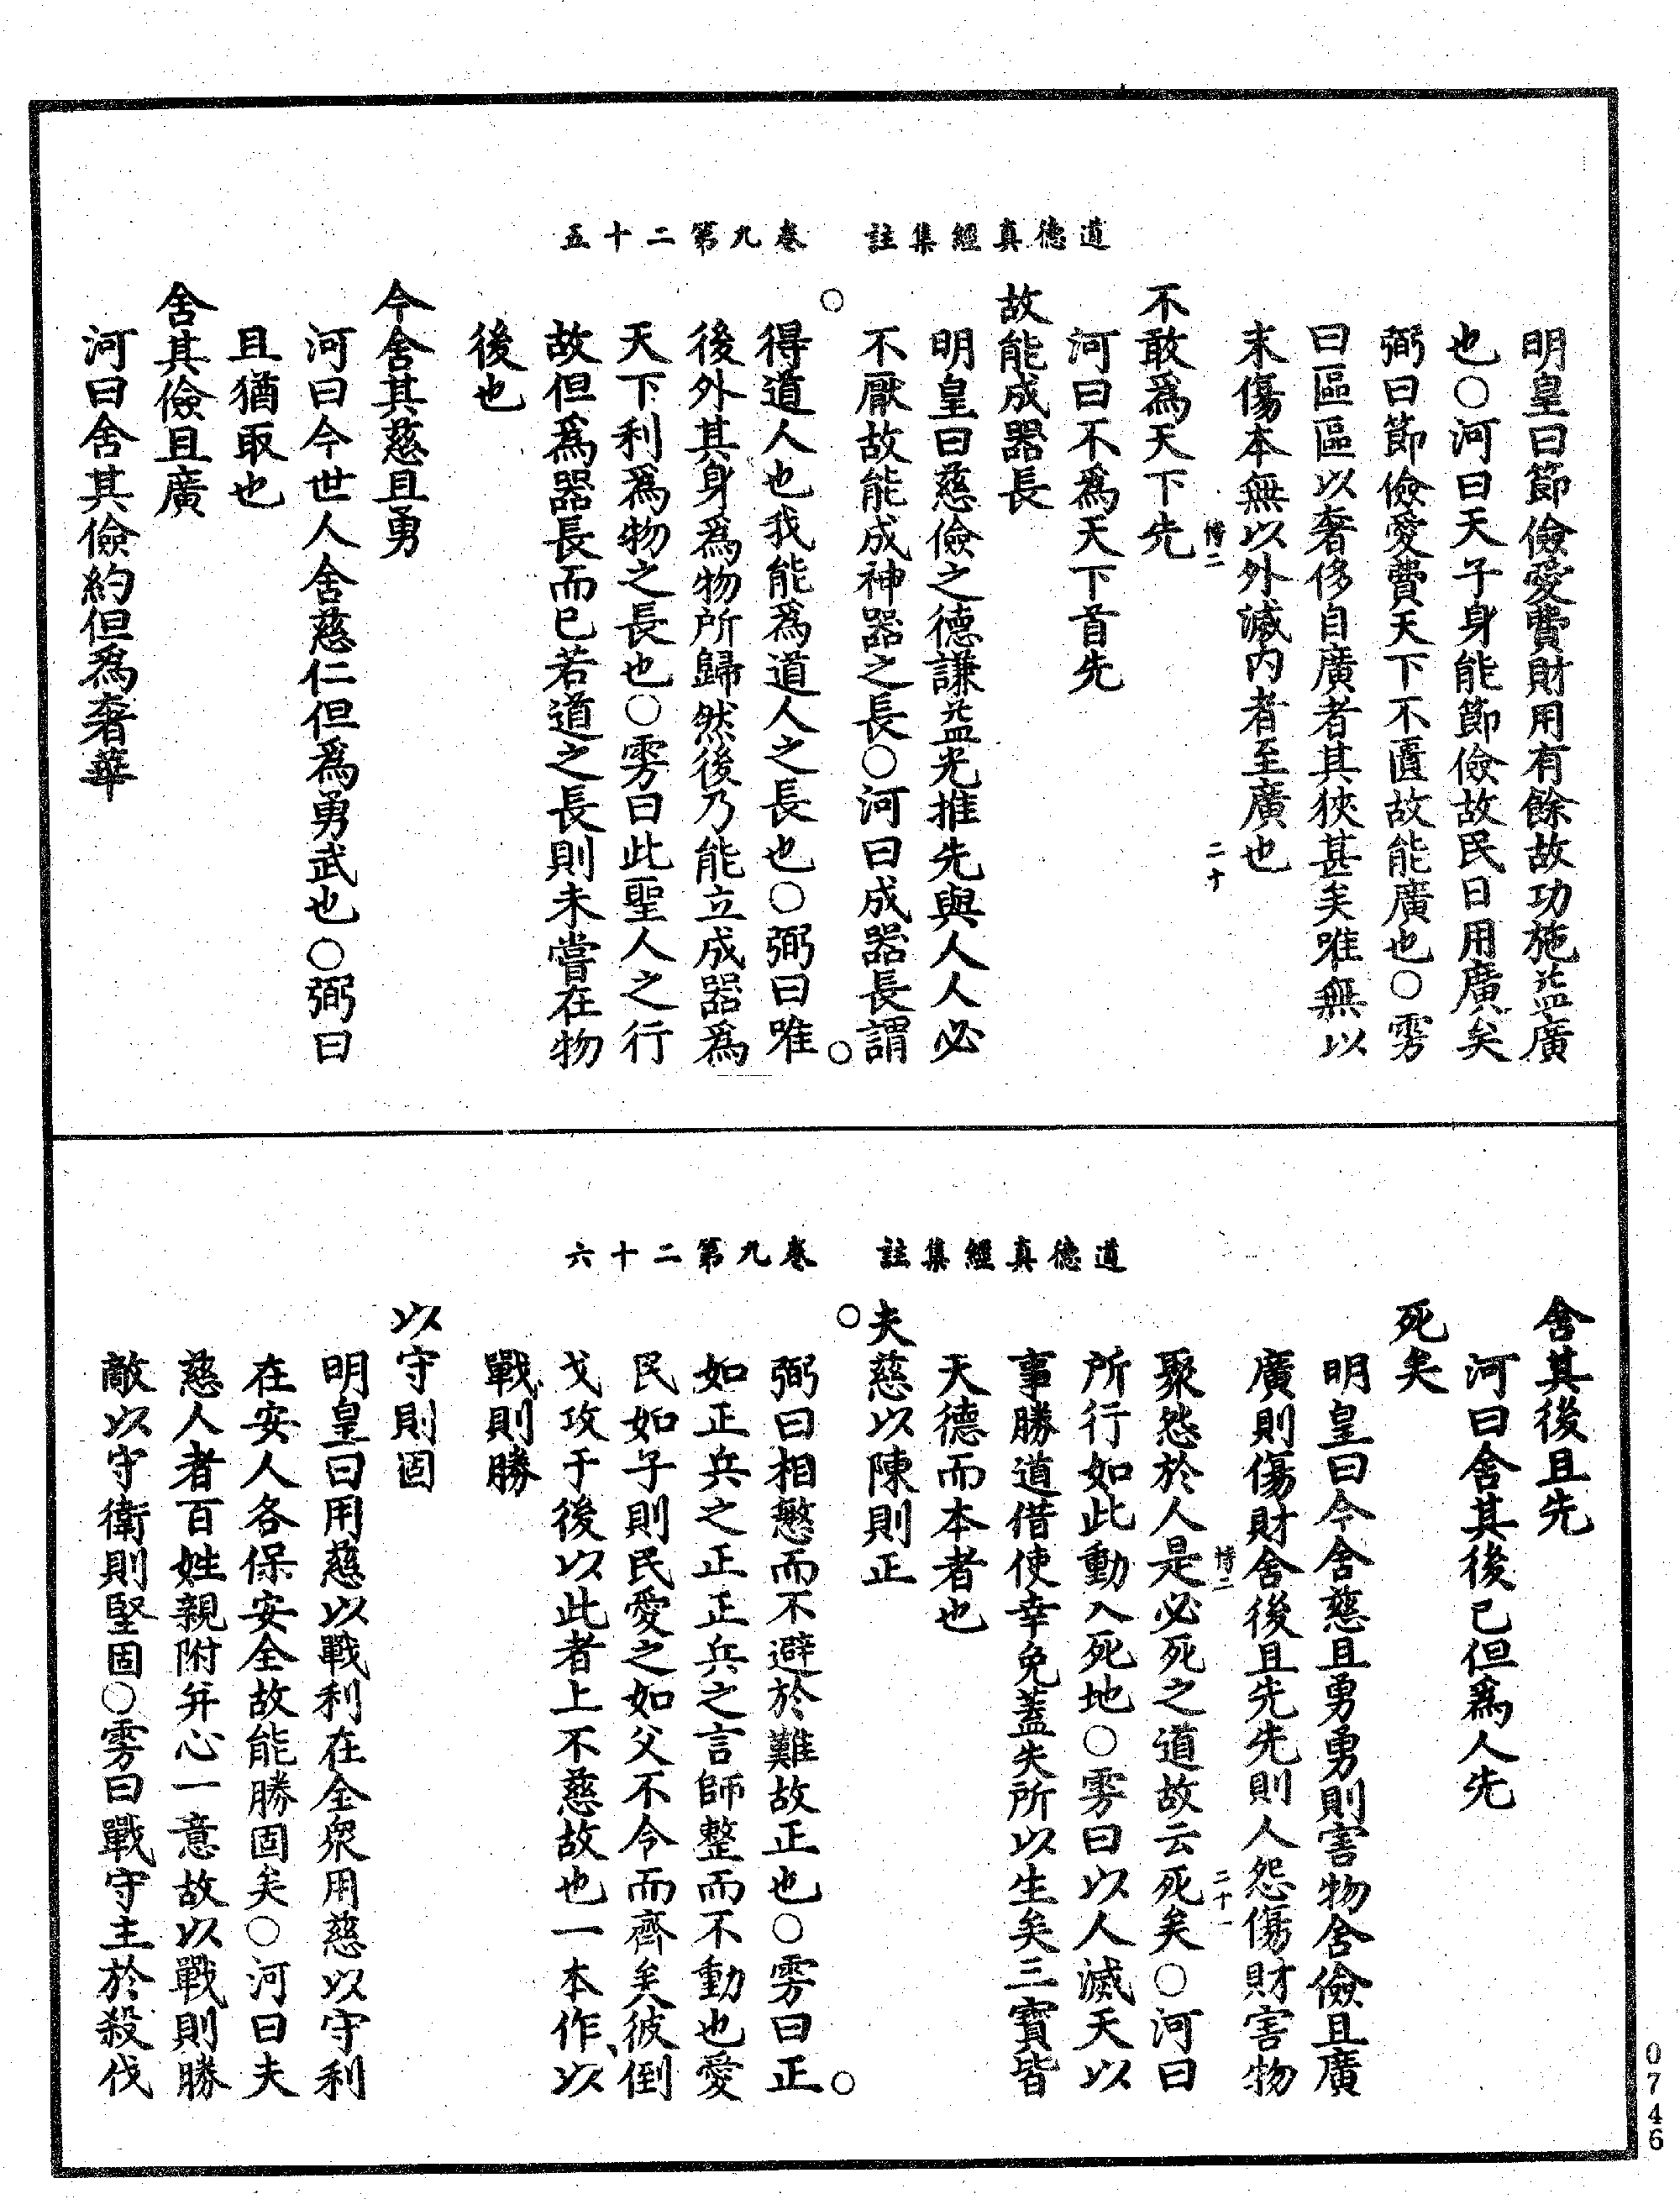 道德真經集註　卷九第二十五
明皇曰節儉愛費財用有餘故功施益廣
也○河曰天子身能節儉故民日用廣矣
弼曰節儉愛費天下不匱故能廣也○雱
曰區區以奢侈自廣者其狹甚矣唯無以
末傷本無以外滅内者至廣也
博二　二十
不敢爲天下先
河曰不爲天下首先
故能成器長
明皇曰慈儉之德謙益光推先與人人必
不厭故能成神器之長○河曰成器長謂
得道人也我能爲道人之長也○弼曰唯
後外其身爲物所歸然後乃能立成器爲
天下利爲物之長也○雱曰此聖人之行
故但爲器長而已若道之長則未嘗在物
後也
今舍其慈且勇
河曰今世人舍慈仁但爲勇武也○弼曰
且猶取也
舍其儉且廣
河曰舍其儉約但爲奢華
道德真經集註　卷九第二十六
舍其後且先
河曰舍其後己但爲人先
死矣
明皇曰今舍慈且勇勇則害物舍儉且廣
廣則傷財舍後且先先則人怨傷財害物
博二　二十一
聚怨於人是必死之道故云死矣○河曰
所行如此動入死地○雱曰以人滅天以
事勝道借使幸免蓋失所以生矣三寶皆
天德而本者也
夫慈以陳則正
弼曰相愍而不避於難故正也○雱曰正
如正兵之正正兵之言師整而不動也愛
民如子則民愛之如父不令而齊矣彼倒
戈攻于後以此者上不慈故也一本作以
戰則勝
以守則固
明皇曰用慈以戰利在全衆用慈以守利
在安人各保安全故能勝固矣○河曰夫
慈人者百姓親附并心一意故以戰則勝
敵以守衛則堅固○雱曰戰守主於殺伐
0746